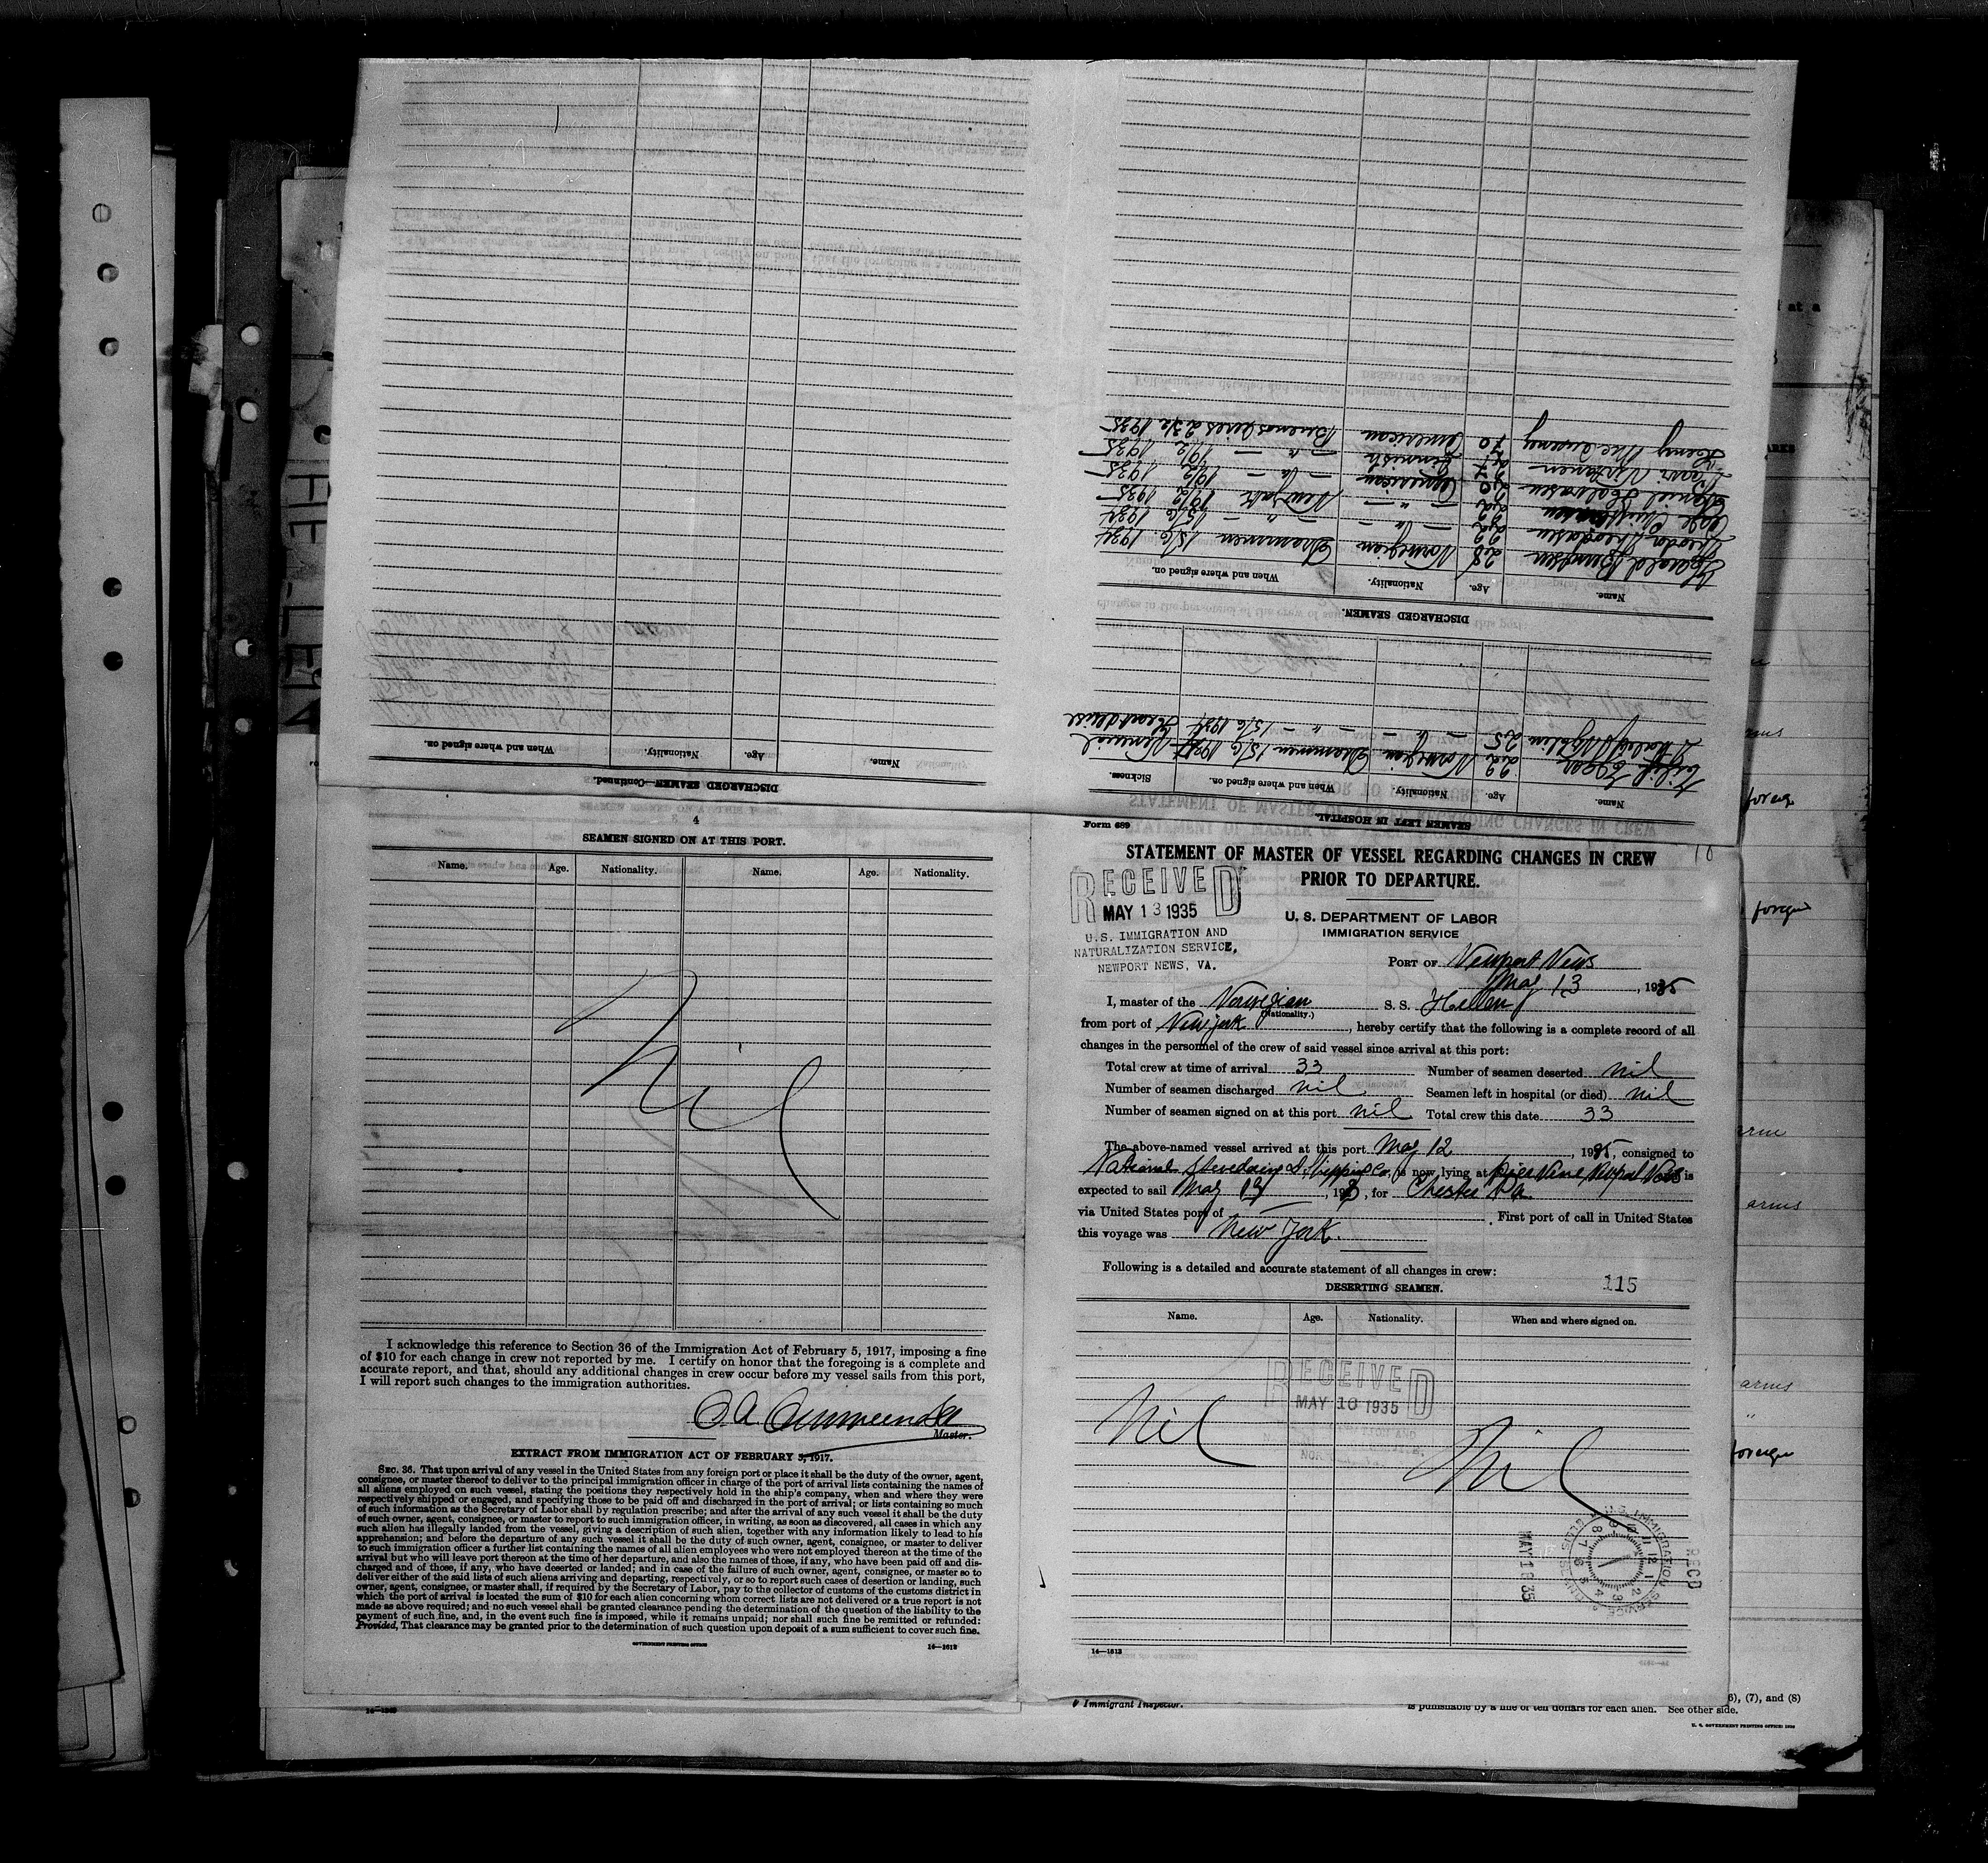 DISCHARGED SEAMEN—Continued.
Name. Age. Nationality. When and where signed on.
SEAMEN LEFT IN HOSPITAL.
Name. Age. Nationality. When and where signed on. Sickness.
Egil 22 Norwegian Drammen 15/6 1934
25 — " — — " — 15/6 1934
DISCHARGED SEAMEN.
Name. Age. Nationality. When and where signed on.
Harald 28 Norwegian Drammen 15/6 1934
22 — " — — " — 15/6 1934
22 — " — New York 19/2 1935
Daniel American — " — 19/2 1935
Finnish — " — 19/2 1935
Henry American Buenos Aires 1935
4
SEAMEN SIGNED ON AT THIS PORT.
Name. Age. Nationality. Name. Age. Nationality.
Nil
I acknowledge this reference to Section 36 of the Immigration Act of February 5, 1917, imposing a fine
of $10 for each change in crew not reported by me. I certify on honor that the foregoing is a complete and
accurate report, and that, should any additional changes in crew occur before my vessel sails from this port,
I will report such changes to the immigration authorities.
Master.
EXTRACT FROM IMMIGRATION ACT OF FEBRUARY 5, 1917.
SEC. 36. That upon arrival of any vessel in the United States from any foreign port or place it shall be the duty of the owner, agent,
consignee, or master thereof to deliver to the principal immigration officer in charge of the port of arrival lists containing the names of
all aliens employed on such vessel, stating the positions they respectively hold in the ship's company, when and where they were
respectively shipped or engaged, and specifying those to be paid off and discharged in the port of arrival; or lists containing so much
of such information as the Secretary of Labor shall by regulation prescribe; and after the arrival of any such vessel it shall be the duty
of such owner, agent, consignee, or master to report to such immigration officer, in writing, as soon as discovered, all cases in which any
such alien has illegally landed from the vessel, giving a description of such alien, together with any information likely to lead to his
apprehension; and before the departure of any such vessel it shall be the duty of such owner, agent, consignee, or master to deliver
to such immigration officer a further list containing the names of all alien employees who were not employed thereon at the time of the
arrival but who will leave port thereon at the time of her departure, and also the names of those, if any, who have been paid off and dis-
charged and of those, if any, who have deserted or landed; and in case of the failure of such owner, agent, consignee, or master so to
deliver either of the said lists of such aliens arriving and departing, respectively, or so to report such cases of desertion or landing, such
owner, agent, consignee, or master shall, if required by the Secretary of Labor, pay to the collector of customs of the customs district in
which the port of arrival is located the sum of $10 for each alien concerning whom correct lists are not delivered or a true report is not
made as above required; and no such vessel shall be granted clearance pending the determination of the question of the liability to the
payment of such fine, and, in the event such fine is imposed, while it remains unpaid; nor shall such fine be remitted or refunded:
Provided, That clearance may be granted prior to the determination of such question upon deposit of a sum sufficient to cover such fine.
GOVERNMENT PRINTING OFFICE 14—1612
Form 689
STATEMENT OF MASTER OF VESSEL REGARDING CHANGES IN CREW
PRIOR TO DEPARTURE.
RECEIVED
MAY 13 1935
U.S. IMMIGRATION AND
NATURALIZATION SERVICE,
NEWPORT NEWS, VA.
U. S. DEPARTMENT OF LABOR
IMMIGRATION SERVICE
PORT OF Newport News
May 13, 1935
I, master of the Norwegian S. S. Hellen
(Nationality.)
from port of New York, hereby certify that the following is a complete record of all
changes in the personnel of the crew of said vessel since arrival at this port:
Total crew at time of arrival 33 Number of seamen deserted nil
Number of seamen discharged nil Seamen left in hospital (or died) nil
Number of seamen signed on at this port nil Total crew this date 33
The above-named vessel arrived at this port May 12, 1935, consigned to
National Stevedoring & Shipping Co, is now lying at Pier Nine Newport News is
expected to sail May 13, 193, for Chester Pa.
via United States port of — . First port of call in United States
this voyage was New York.
Following is a detailed and accurate statement of all changes in crew:
115
DESERTING SEAMEN.
Name. Age. Nationality. When and where signed on.
RECEIVED
MAY 10 1935
Nil Nil
MAY 1 8 35
U.S. IMMIGRATION SERVICE
REC'D
14—1612
Immigrant Inspector.
is punishable by a fine of ten dollars for each alien. See other side.
6), (7), and (8)
U. S. GOVERNMENT PRINTING OFFICE
at a
foreign
arms
arms
foreign